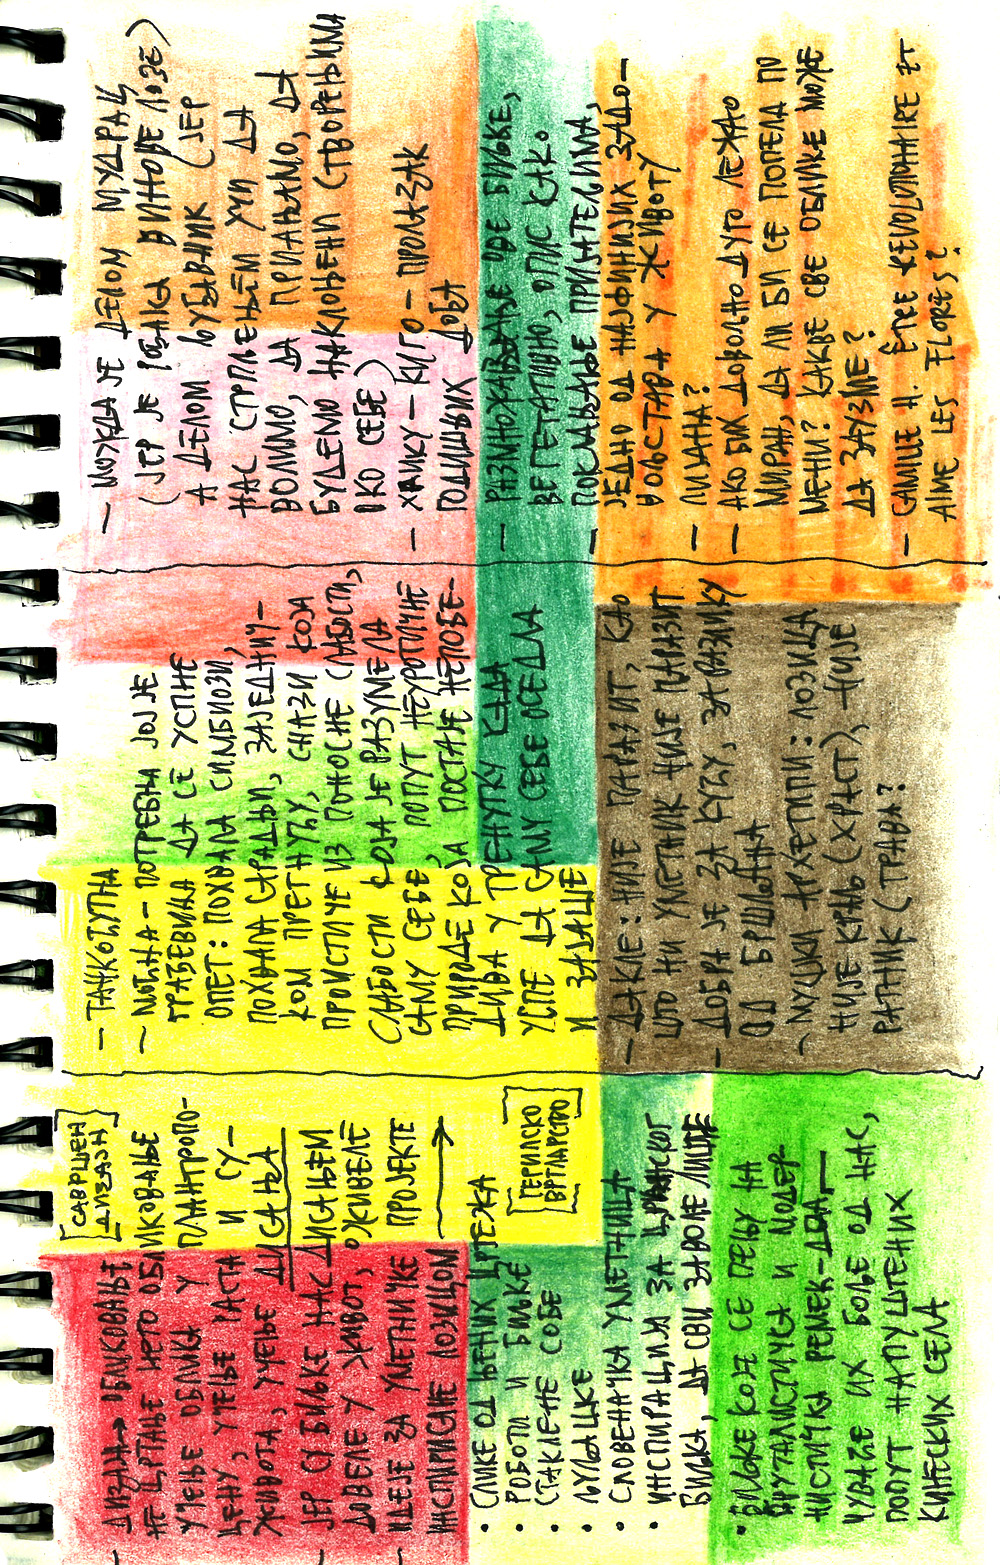 [САВРШЕН
ДИЗАЈН]
– ДИЗАЈН → ОБЛИКОВАЊЕ
НЕ ЦРТАЊЕ НЕГО ОБЛИКОВАЊЕ
УЧЕЊЕ ОБЛИКА У ПЛАНТРОПО-
ЦЕНУ, УЧЕЊЕ РАСТА И СУ-
ЖИВОТА, УЧЕЊЕ ДИСАЊА
– ЈЕР СУ БИЉКЕ НАС ДИСАЊЕМ
ДОВЕЛЕ У ЖИВОТ, ОЖИВЕЛЕ
– ИДЕЈЕ ЗА УМЕТНИЧКЕ ПРОЈЕКТЕ
ИНСПИРИСАНЕ ЛОЗИЦОМ →
• СЛИКЕ ОД ЊЕНИХ ЦРТЕЖА
• РОБОТИ И БИЉКЕ
• СТАКЛЕНЕ СОБЕ
[ГЕРИЛСКО
ВРТЛАРСТВО]
• ЉУЉАШКЕ
• СЛОВЕНАЧКА УМЕТНИЦА
• ИНСПИРАЦИЈА ЗА ЦРТАНОГ
БИЉКА, ДА СВИ ЗАВОЛЕ ЛИШЋЕ
• БИЉКЕ КОЈЕ СЕ ПЕЊУ НА
БРУТАЛИСТИЧКА И МОДЕР-
НИСТИЧКА РЕМЕК-ДЕЛА –
ЧУВАЋЕ ИХ БОЉЕ ОД НАС,
ПОПУТ НАПУШТЕНИХ
КИНЕСКИХ СЕЛА
– ТАНКОЋУТНА
– МОЋНА – ПОТРЕБНА ЈОЈ ЈЕ
ГРАЂЕВИНА ДА СЕ УСПНЕ
ОПЕТ: ПОХВАЛА СИМБИОЗИ,
ПОХВАЛА САРАДЊИ, ЗАЈЕДНИЧ-
КОМ ПРЕГНУЋУ, СНАЗИ КОЈА
ПРОИСТИЧЕ ИЗ ПОНОСНЕ СЛАБОСТИ,
СЛАБОСТИ КОЈА ЈЕ РАЗУМЕЛА
САМУ СЕБЕ, ПОПУТ НЕУРОТИЧНЕ
ПРИРОДЕ КОЈА ПОСТАЈЕ НЕПОБЕ-
ДИВА У ТРЕНУТКУ КАДА
УСПЕ ДА САМУ СЕБЕ ОСЕДЛА
И ЗАЈАШЕ
– ДАКЛЕ: НИЈЕ ПАРАЗИТ, КАО
ШТО НИ УМЕТНИК НИЈЕ ПАРАЗИТ
– ДОБРА ЈЕ ЗА КУЋУ, ЗА РАЗЛИКУ
ОД БРШЉАНА
– МУШКИ АРХЕТИПИ: ЛОЗИЦА
НИЈЕ КРАЉ (ХРАСТ), НИЈЕ
РАТНИК (ТРАВА?
– МОЖДА ЈЕ ДЕЛОМ МУДРАЦ
(ЈЕР ЈЕ РОЂАКА ВИНОВЕ ЛОЗЕ)
А ДЕЛОМ ЉУБАВНИК (ЈЕР
НАС СТРПЉЕЊЕМ УЧИ ДА
ВОЛИМО, ДА ПРИАЊАМО, ДА
БУДЕМО НАКЛОЊЕНИ СТВОРЕЊИМА
ОКО СЕБЕ)
– ХАИКУ – КИГО – ПРОЛАЗАК
ГОДИШЊИХ ДОБА
– РАЗМНОЖАВАЊЕ ОВЕ БИЉКЕ,
ВЕГЕТАТИВНО, ОПИС КАКО
– ПОКЛАЊАЊЕ ПРИЈАТЕЉИМА,
ЈЕДНО ОД НАЈФИНИЈИХ ЗАДО-
ВОЉСТАВА У ЖИВОТУ
– ЛИЈАНА?
– АКО БИХ ДОВОЉНО ДУГО ЛЕЖАО
МИРАН, ДА ЛИ БИ СЕ ПОПЕЛА ПО
МЕНИ? КАКВЕ СВЕ ОБЛИКЕ МОЖЕ
ДА ЗАУЗМЕ?
– CAMILLE H. ÊTRE RÉVOLUTIONNAIRE ET
AIME LES FLORES?